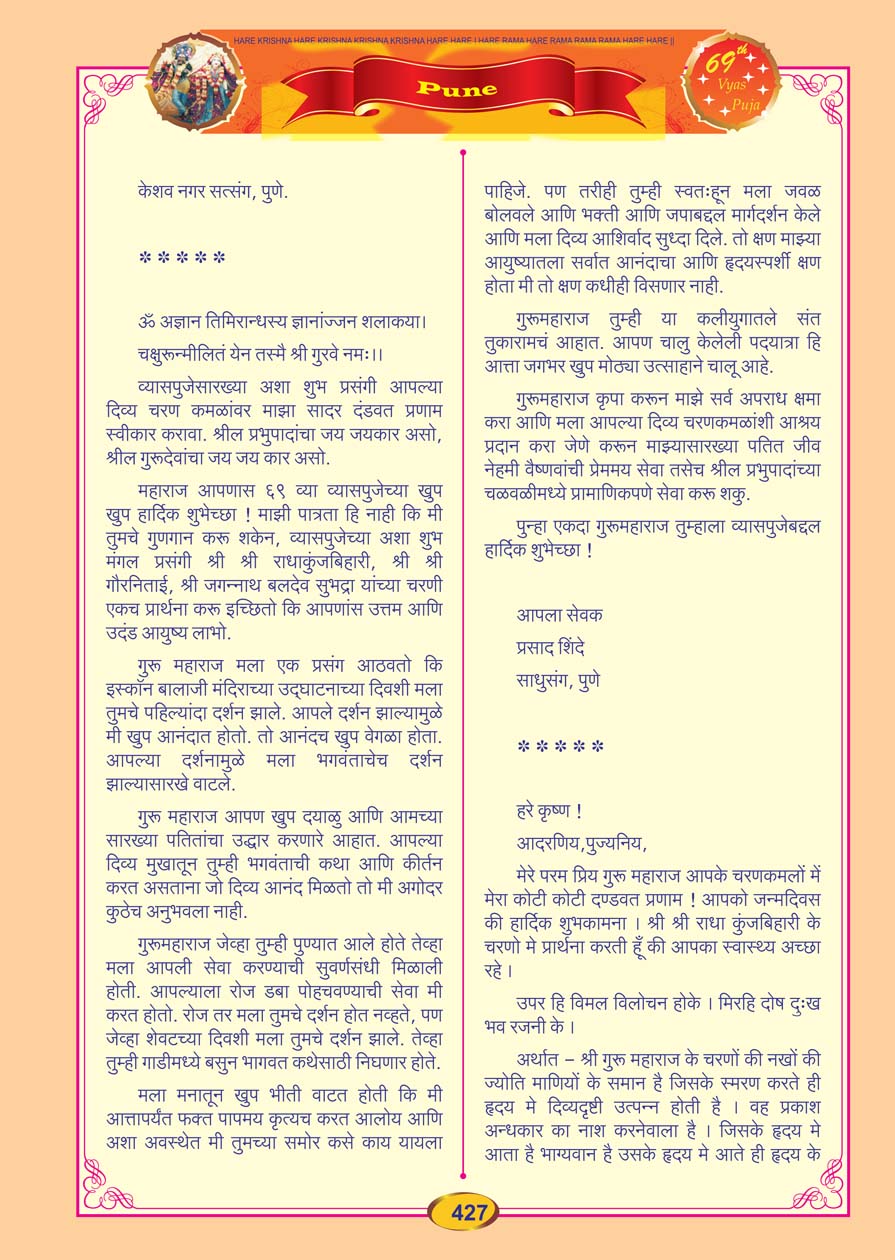 HARE KRISHNA HARE KRISHNA KRISHNA KRISHNA HARE HARE | HARE RAMA HARE RAMA RAMA RAMA HARE HARE ||
Pune
69th
Vyas
Puja
केशव नगर सत्संग, पुणे.
* * * * *
ॐ अज्ञान तिमिरान्धस्य ज्ञानांज्जन शलाकया।
चक्षुरून्मीलितं येन तस्मै श्री गुरवे नमः।।
व्यासपुजेसारख्या अशा शुभ प्रसंगी आपल्या
दिव्य चरण कमळांवर माझा सादर दंडवत प्रणाम
स्वीकार करावा. श्रील प्रभुपादांचा जय जयकार असो,
श्रील गुरूदेवांचा जय जय कार असो.
महाराज आपणास ६९ व्या व्यासपुजेच्या खुप
खुप हार्दिक शुभेच्छा ! माझी पात्रता हि नाही कि मी
तुमचे गुणगान करू शकेन, व्यासपुजेच्या अशा शुभ
मंगल प्रसंगी श्री श्री राधाकुंजबिहारी, श्री श्री
गौरनिताई, श्री जगन्नाथ बलदेव सुभद्रा यांच्या चरणी
एकच प्रार्थना करू इच्छितो कि आपणांस उत्तम आणि
उदंड आयुष्य लाभो.
गुरू महाराज मला एक प्रसंग आठवतो कि
इस्कॉन बालाजी मंदिराच्या उद्घाटनाच्या दिवशी मला
तुमचे पहिल्यांदा दर्शन झाले. आपले दर्शन झाल्यामुळे
मी खुप आनंदात होतो. तो आनंदच खुप वेगळा होता.
आपल्या दर्शनामुळे मला भगवंताचेच दर्शन
झाल्यासारखे वाटले.
गुरू महाराज आपण खुप दयाळु आणि आमच्या
सारख्या पतितांचा उद्धार करणारे आहात. आपल्या
दिव्य मुखातून तुम्ही भगवंताची कथा आणि कीर्तन
करत असताना जो दिव्य आनंद मिळतो तो मी अगोदर
कुठेच अनुभवला नाही.
गुरूमहाराज जेव्हा तुम्ही पुण्यात आले होते तेव्हा
मला आपली सेवा करण्याची सुवर्णसंधी मिळाली
होती. आपल्याला रोज डबा पोहचवण्याची सेवा मी
करत होतो. रोज तर मला तुमचे दर्शन होत नव्हते, पण
जेव्हा शेवटच्या दिवशी मला तुमचे दर्शन झाले. तेव्हा
तुम्ही गाडीमध्ये बसुन भागवत कथेसाठी निघणार होते.
मला मनातून खुप भीती वाटत होती कि मी
आत्तापर्यंत फक्त पापमय कृत्यच करत आलोय आणि
अशा अवस्थेत मी तुमच्या समोर कसे काय यायला
पाहिजे. पण तरीही तुम्ही स्वतःहून मला जवळ
बोलवले आणि भक्ती आणि जपाबद्दल मार्गदर्शन केले
आणि मला दिव्य आशिर्वाद सुध्दा दिले. तो क्षण माझ्या
आयुष्यातला सर्वात आनंदाचा आणि हृदयस्पर्शी क्षण
होता मी तो क्षण कधीही विसणार नाही.
गुरूमहाराज तुम्ही या कलीयुगातले संत
तुकारामचं आहात. आपण चालु केलेली पदयात्रा हि
आत्ता जगभर खुप मोठ्या उत्साहाने चालू आहे.
गुरूमहाराज कृपा करून माझे सर्व अपराध क्षमा
करा आणि मला आपल्या दिव्य चरणकमळांशी आश्रय
प्रदान करा जेणे करून माझ्यासारख्या पतित जीव
नेहमी वैष्णवांची प्रेममय सेवा तसेच श्रील प्रभुपादांच्या
चळवळीमध्ये प्रामाणिकपणे सेवा करू शकु.
पुन्हा एकदा गुरूमहाराज तुम्हाला व्यासपुजेबद्दल
हार्दिक शुभेच्छा !
आपला सेवक
प्रसाद शिंदे
साधुसंग, पुणे
* * * * *
हरे कृष्ण !
आदरणिय,पुज्यनिय,
मेरे परम प्रिय गुरू महाराज आपके चरणकमलों में
मेरा कोटी कोटी दण्डवत प्रणाम ! आपको जन्मदिवस
की हार्दिक शुभकामना । श्री श्री राधा कुंजबिहारी के
चरणो मे प्रार्थना करती हूँ की आपका स्वास्थ्य अच्छा
रहे ।
उपर हि विमल विलोचन होके । मिरहि दोष दुःख
भव रजनी के ।
अर्थात – श्री गुरू महाराज के चरणों की नखों की
ज्योति माणियों के समान है जिसके स्मरण करते ही
हृदय मे दिव्यदृष्टी उत्पन्न होती है । वह प्रकाश
अन्धकार का नाश करनेवाला है । जिसके हृदय मे
आता है भाग्यवान है उसके हृदय मे आते ही हृदय के
427